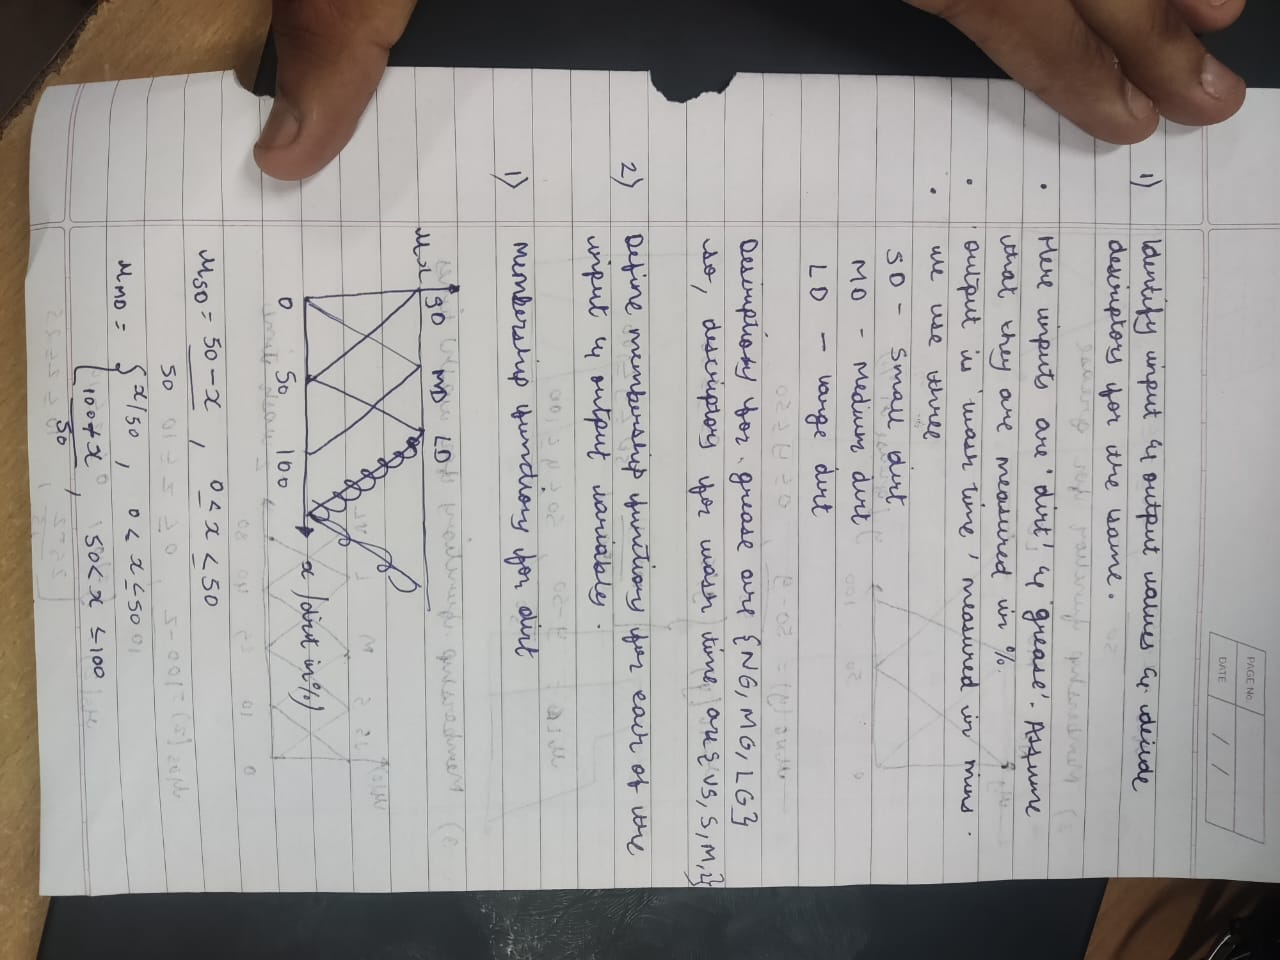 PAGE No.
DATE / /
1) Identify input & output values & decide
descriptors for the same.
• Here inputs are 'dirt' & 'grease'. Assume
that they are measured in %.
• output is 'wash time' measured in mins.
• we use three
SD - small dirt
MD - Medium dirt
LD - Large dirt
Descriptors for grease are {NG, MG, LG}
so, descriptors for wash time are {VS, S, M, L}
2) Define membership functions for each of the
input & output variables.
1) Membership functions for dirt
SD MD LD
0 50 100 x (dirt in %)
μSD = 50 - x / 50 , 0 ≤ x ≤ 50
μMD = { x/50 , 0 < x ≤ 50
100 + x / 50 , 50 < x ≤ 100